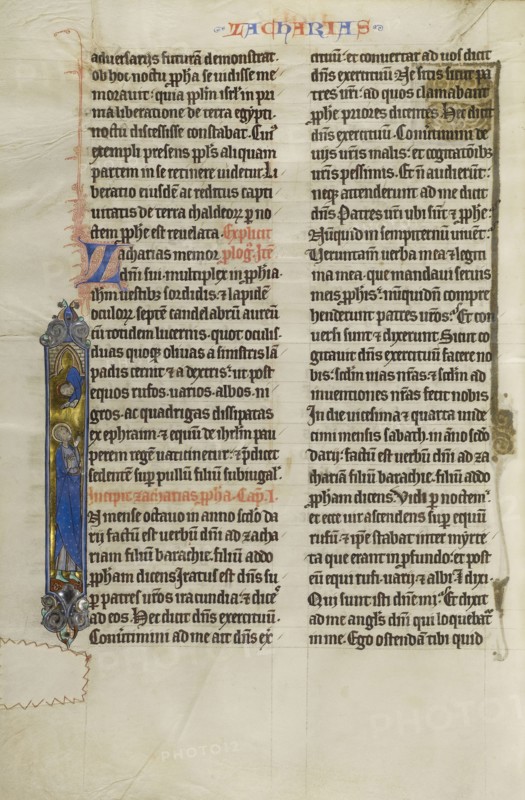 ZACHARIAS
aduersarijs futurã demonstrat.
ob hoc noctu ppha se uidisse me
morauit: quia pplm isrl in pri
ma liberatione de terra egypti.
noctu discessisse constabat. Cui9
exempli presens ppls aliquam
partem in se retinere uidetur. Li
beratio eiusdẽ ac reditus capti
uitatis de terra chaldeoꝝ p no
ctem pphe est reuelata. Explicit
Zacharias memor plog9. Itẽ
dñi sui multiplex in pphia.
ihm uestibz sordidis. & lapidẽ
oculoꝝ septẽ candelabrũ aureũ
cũ totidem lucernis. quot oculis.
duas quoqz oliuas a sinistris lã
padis cernit & a dextris: ut post
equos rufos. uarios. albos. ni
gros. ac quadrigas dissipatas
ex ephraim. & equũ de ihrlm pau
perem regẽ uaticinetur: & pdicet
sedentẽ sup pullũ filiũ subiugal.
Incipit zacharias ppha. Cap. I.
In mense octauo in anno scdo da
rij factũ est uerbũ dñi ad zacha
riam filiũ barachie. filiũ addo
ppham dicens Iratus est dñs su
p patres uros iracundia: & dices
ad eos. Hec dicit dñs exercituũ.
Conuertimini ad me ait dñs ex
cituũ: et conuertar ad uos dicit
dñs exercituũ Ne sitis sicut pa
tres uri: ad quos clamabant
pphe priores dicentes. Hec dicit
dñs exercituũ. Conuertimini de
uijs uris malis: et cogitationibz
uris pessimis. Et ñ audierũt:
neqz attenderunt ad me dicit
dñs. Patres uri ubi sũt & pphe:
Nũquid in sempiternũ uiuẽt:
Veruntam̃ uerba mea & legiti
ma mea. que mandaui seruis
meis pphis: nũquid ñ compre
henderunt patres uros: Et con
uersi sunt & dixerunt Sicut co
gitauit dñs exercituũ facere no
bis. scdm uias nras & scdm ad
inuentiones nras fecit nobis
In die uicesima & quarta unde
cimi mensis sabath. in ãno scdo
darij: factũ est uerbũ dñi ad za
chariã filiũ barachie. filiũ addo
ppham dicens. Vidi p noctem:
et ecce uir ascendens sup equũ
rufũ: & ipse stabat inter myrte
ta que erant in pfundo: et post
eũ equi rufi. uarij & albi. & dixi.
Qui sunt isti dñe mi: Et dixit
ad me angls dñi qui loquebat
in me. Ego ostendã tibi quid